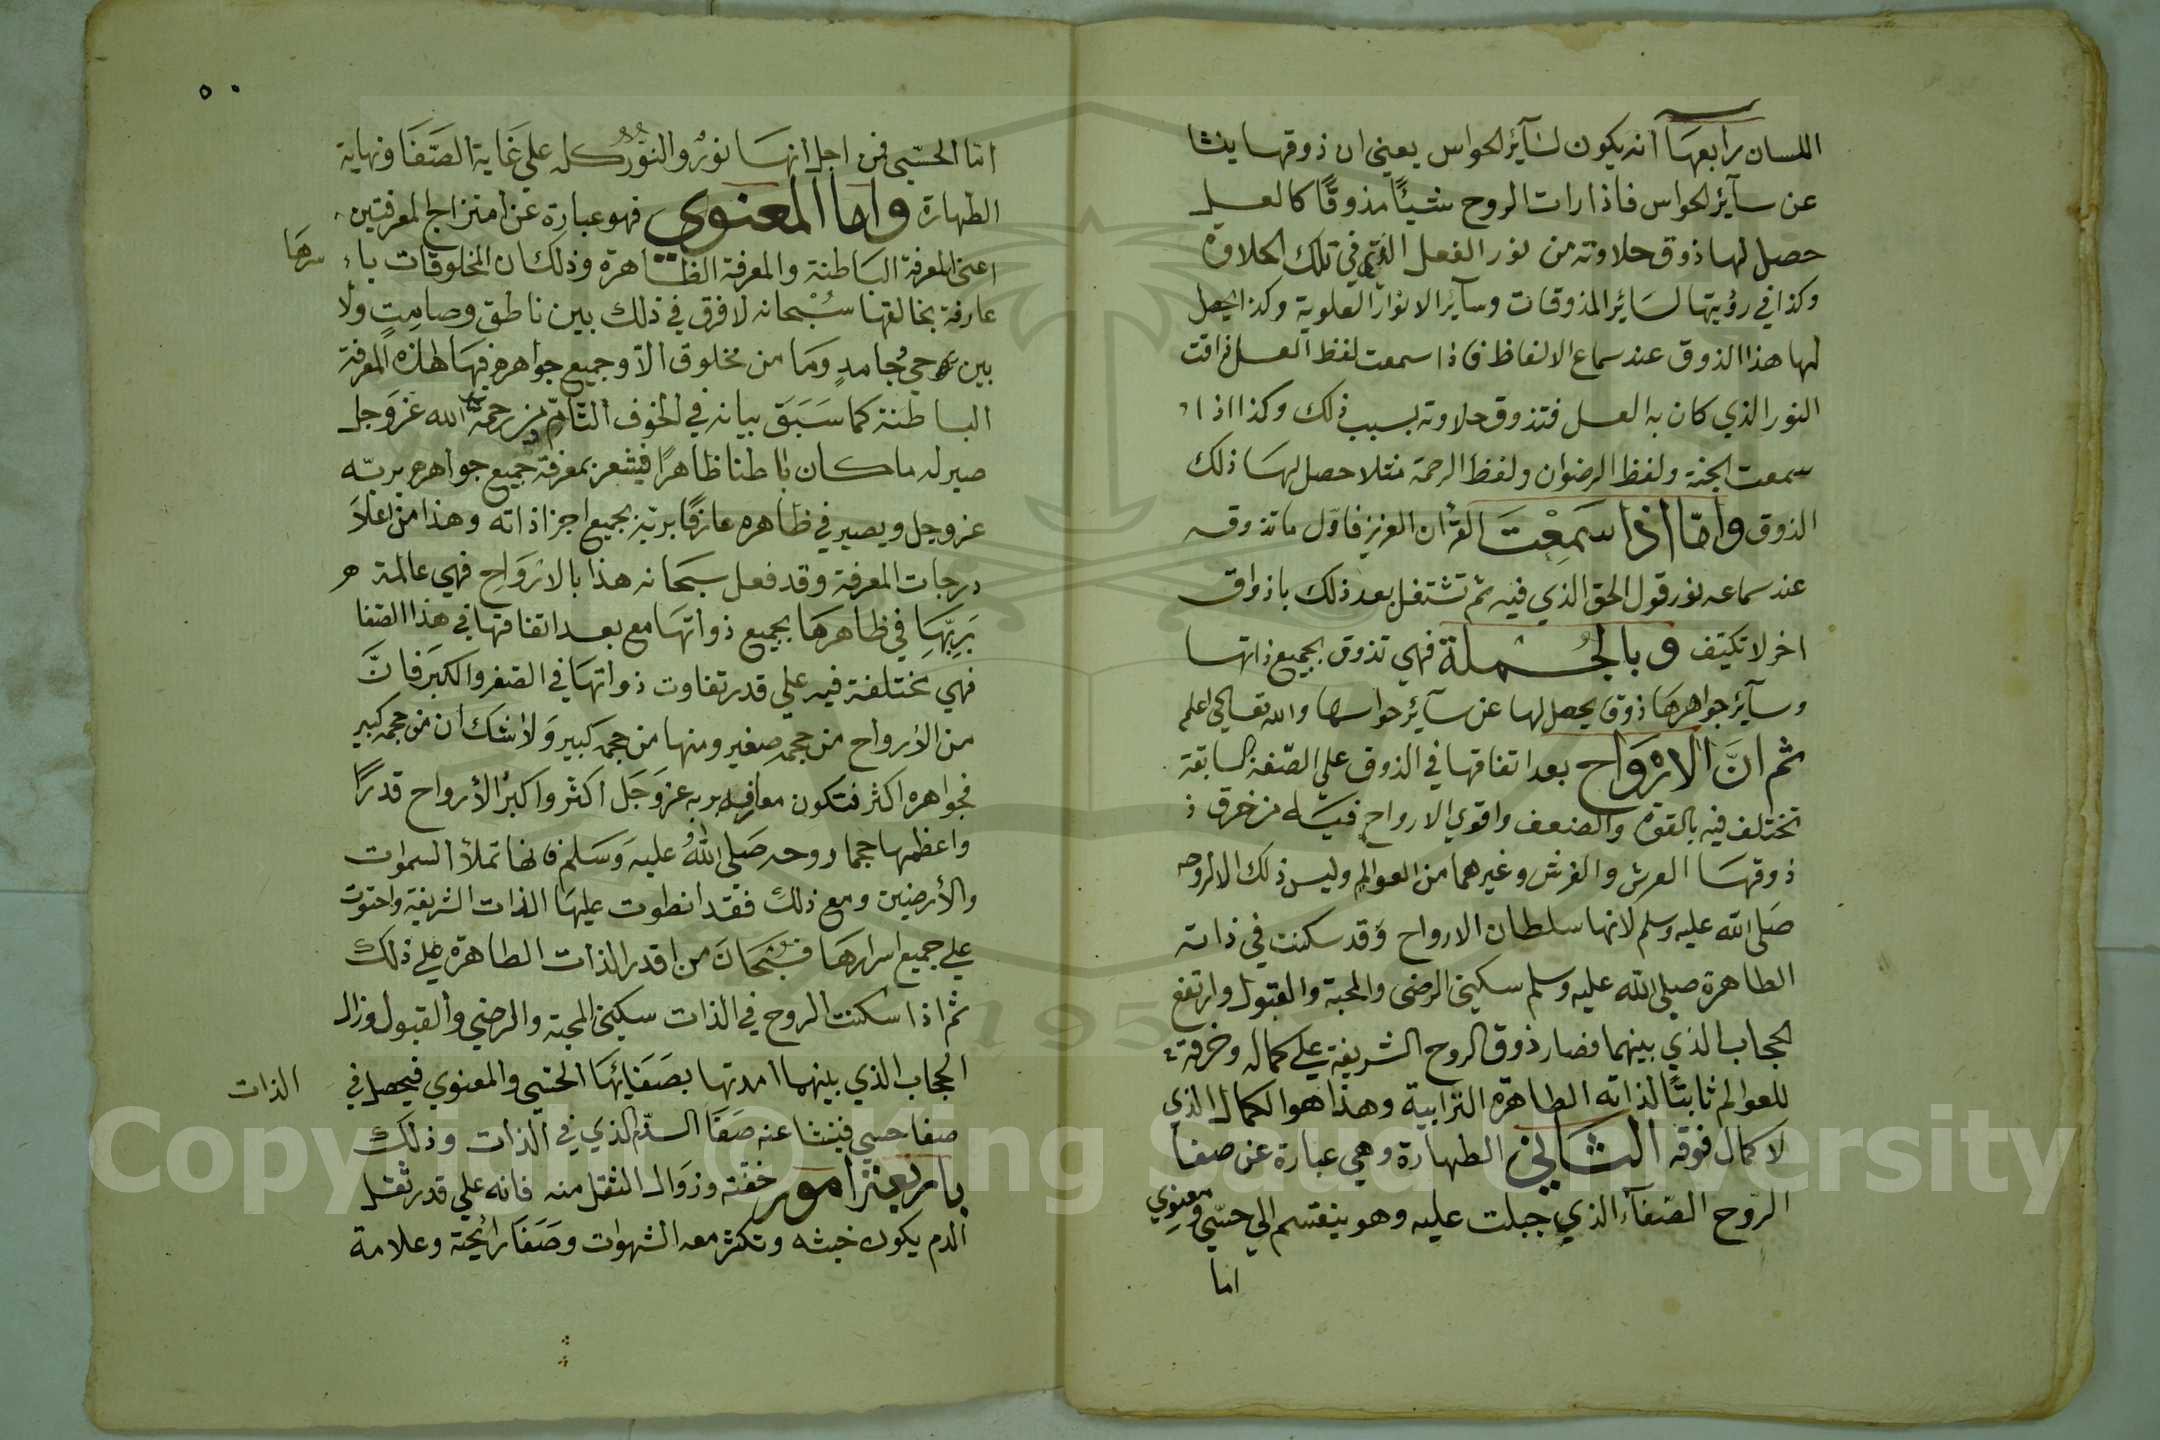 اللسان رابعها انه يكون لسآئر الحواس يعني ان ذوقها ينشا
عن سآئر الحواس فاذا رات الروح شيئًا مذوقًا كالعسل
حصل لها ذوق حلاوته من نور الفعل الذي في تلك الحلاوة
وكذا في رؤيتها لسَائر المذوقات وسآئر الانوار العلوية وكذا يحصل
لها هذا الذوق عند سماع الالفاظ فاذا سمعت لفظ العسل ذاقت
النور الذي كان به العسل فتذوق حلاوته بسبب ذلك وكذا اذا
سمعت الجنة ولفظ الرضوان ولفظ الرحمة مثلا حصل لهَا ذلك
الذوق وامّا اذا سَمِعْتَ القرأن العزيز فاوّل ما تذوقه
عند سماعه نور قول الحق الذي فيه ثم تشتغل بعد ذلك باذواق
اخر لا تكيّف وبالجُملة فهي تذوق بجميع ذاتها
وسآئر جواهرهَا ذوق يحصل لها عن سآئر حواسها والله تعالى اعلم
ثم انَّ الارْوَاح بعد اتفاقها في الذوق على الصّفة السابقة
تختلف فيه بالقوة والضعف واقوي الارواح فيه من خرق
ذوقهَا العرش والفرش وغيرهما من العوالم وليس ذلك الا لروحه
صَلى الله عليه وسلم لانها سلطان الارواح وَقد سكنت في ذاته
الطاهرة صلى الله عليه وسلم سكينى الرضى والمحبة والقبول وارتفع
الحجاب الذي بينهما فصار ذوق الروح الشريفة على كماله وخرقه
للعوالم ثابتًا لذاته الطاهرة الترابية وهذا هو الكمال الذي
لا كمال فوقه الثاني الطهارة وهي عبارة عن صفا
الرّوح الصّفآء الذي جبلت عليه وهو ينقسم الي حسّي ومعنوي
اما
٥٠
امّا الحسّي فمن اجل انهَا نورٌ والنّوُرُ كله علي غَاية الصّفَا ونهاية
الطهارة واما المعنوي فهو عبارة عن امتزاج المعرفتين
اعني المعرفة البَاطنة والمعرفة الظاهرة وذلك ان المخلوقات با
سرهَا
عارفة بخالقهَا سُبْحانه لا فرق في ذلك بين ناطق وصامِتٍ ولا
بين حيّ وجامدٍ وَمَا من مخلوق الاّ وجميع جواهره فيهَا هذه المعرفة
الباطنة كما سَبَقَ بيانه في الخوف التّامّ من رحمهُ الله عَزوَجل
صير له ما كان باطنا ظاهرًا فيشعر بمعرفة جميع جواهره بربّه
عزوجل ويصير في ظاهره عارفًا بربّه بجميع اجزا ذاته وهذا من اعْلاَ
درجات المعرفة وقد فعل سبحانه هذا بالارْوَاحِ فهي عالمة
بَرِبّهَا في ظاهرهَا بجميع ذواتهَا مع بعد اتفاقها في هذا الصّفا
فهي مختلفة فيه علي قدر تفاوت ذواتهَا في الصّغر والكبَر فانَّ
من الارواح من حجمه صغير ومنها من حجمه كبير وَلاشك ان من حجمه كبير
فجواهره اكثر فتكون معارفه بربه عزوَجَل اكثر واكبرُ الأرواح قدرًا
واعظمها حجما روحه صَلى اللهُ عليهَ وَسَلم فانها تملأ السمٰوات
والأرضِين ومع ذلك فقد انطوت عليهَا الذات الشريفة واحتوت
علي جميع اسرارهَا فسُبْحَانَ من اقدر الذات الطاهرة علي ذلك
ثم اذا سكنت الروح في الذات سكينى المحبة والرضي والقبول وزال
الحجاب الذي بينهما امدتها بصَفَائهَا الحسّي والمعنوي فيحصل في
الذات
صفا حسي فينشا عنه صَفَا الدّم الذي في الذات وذلك
باربعة امور خفته وزوَال الثقل منه فانه علي قدر ثقل
الدم يكون خبثه وتكثر معه الشهوات وصَفَا رائحته وعلامة